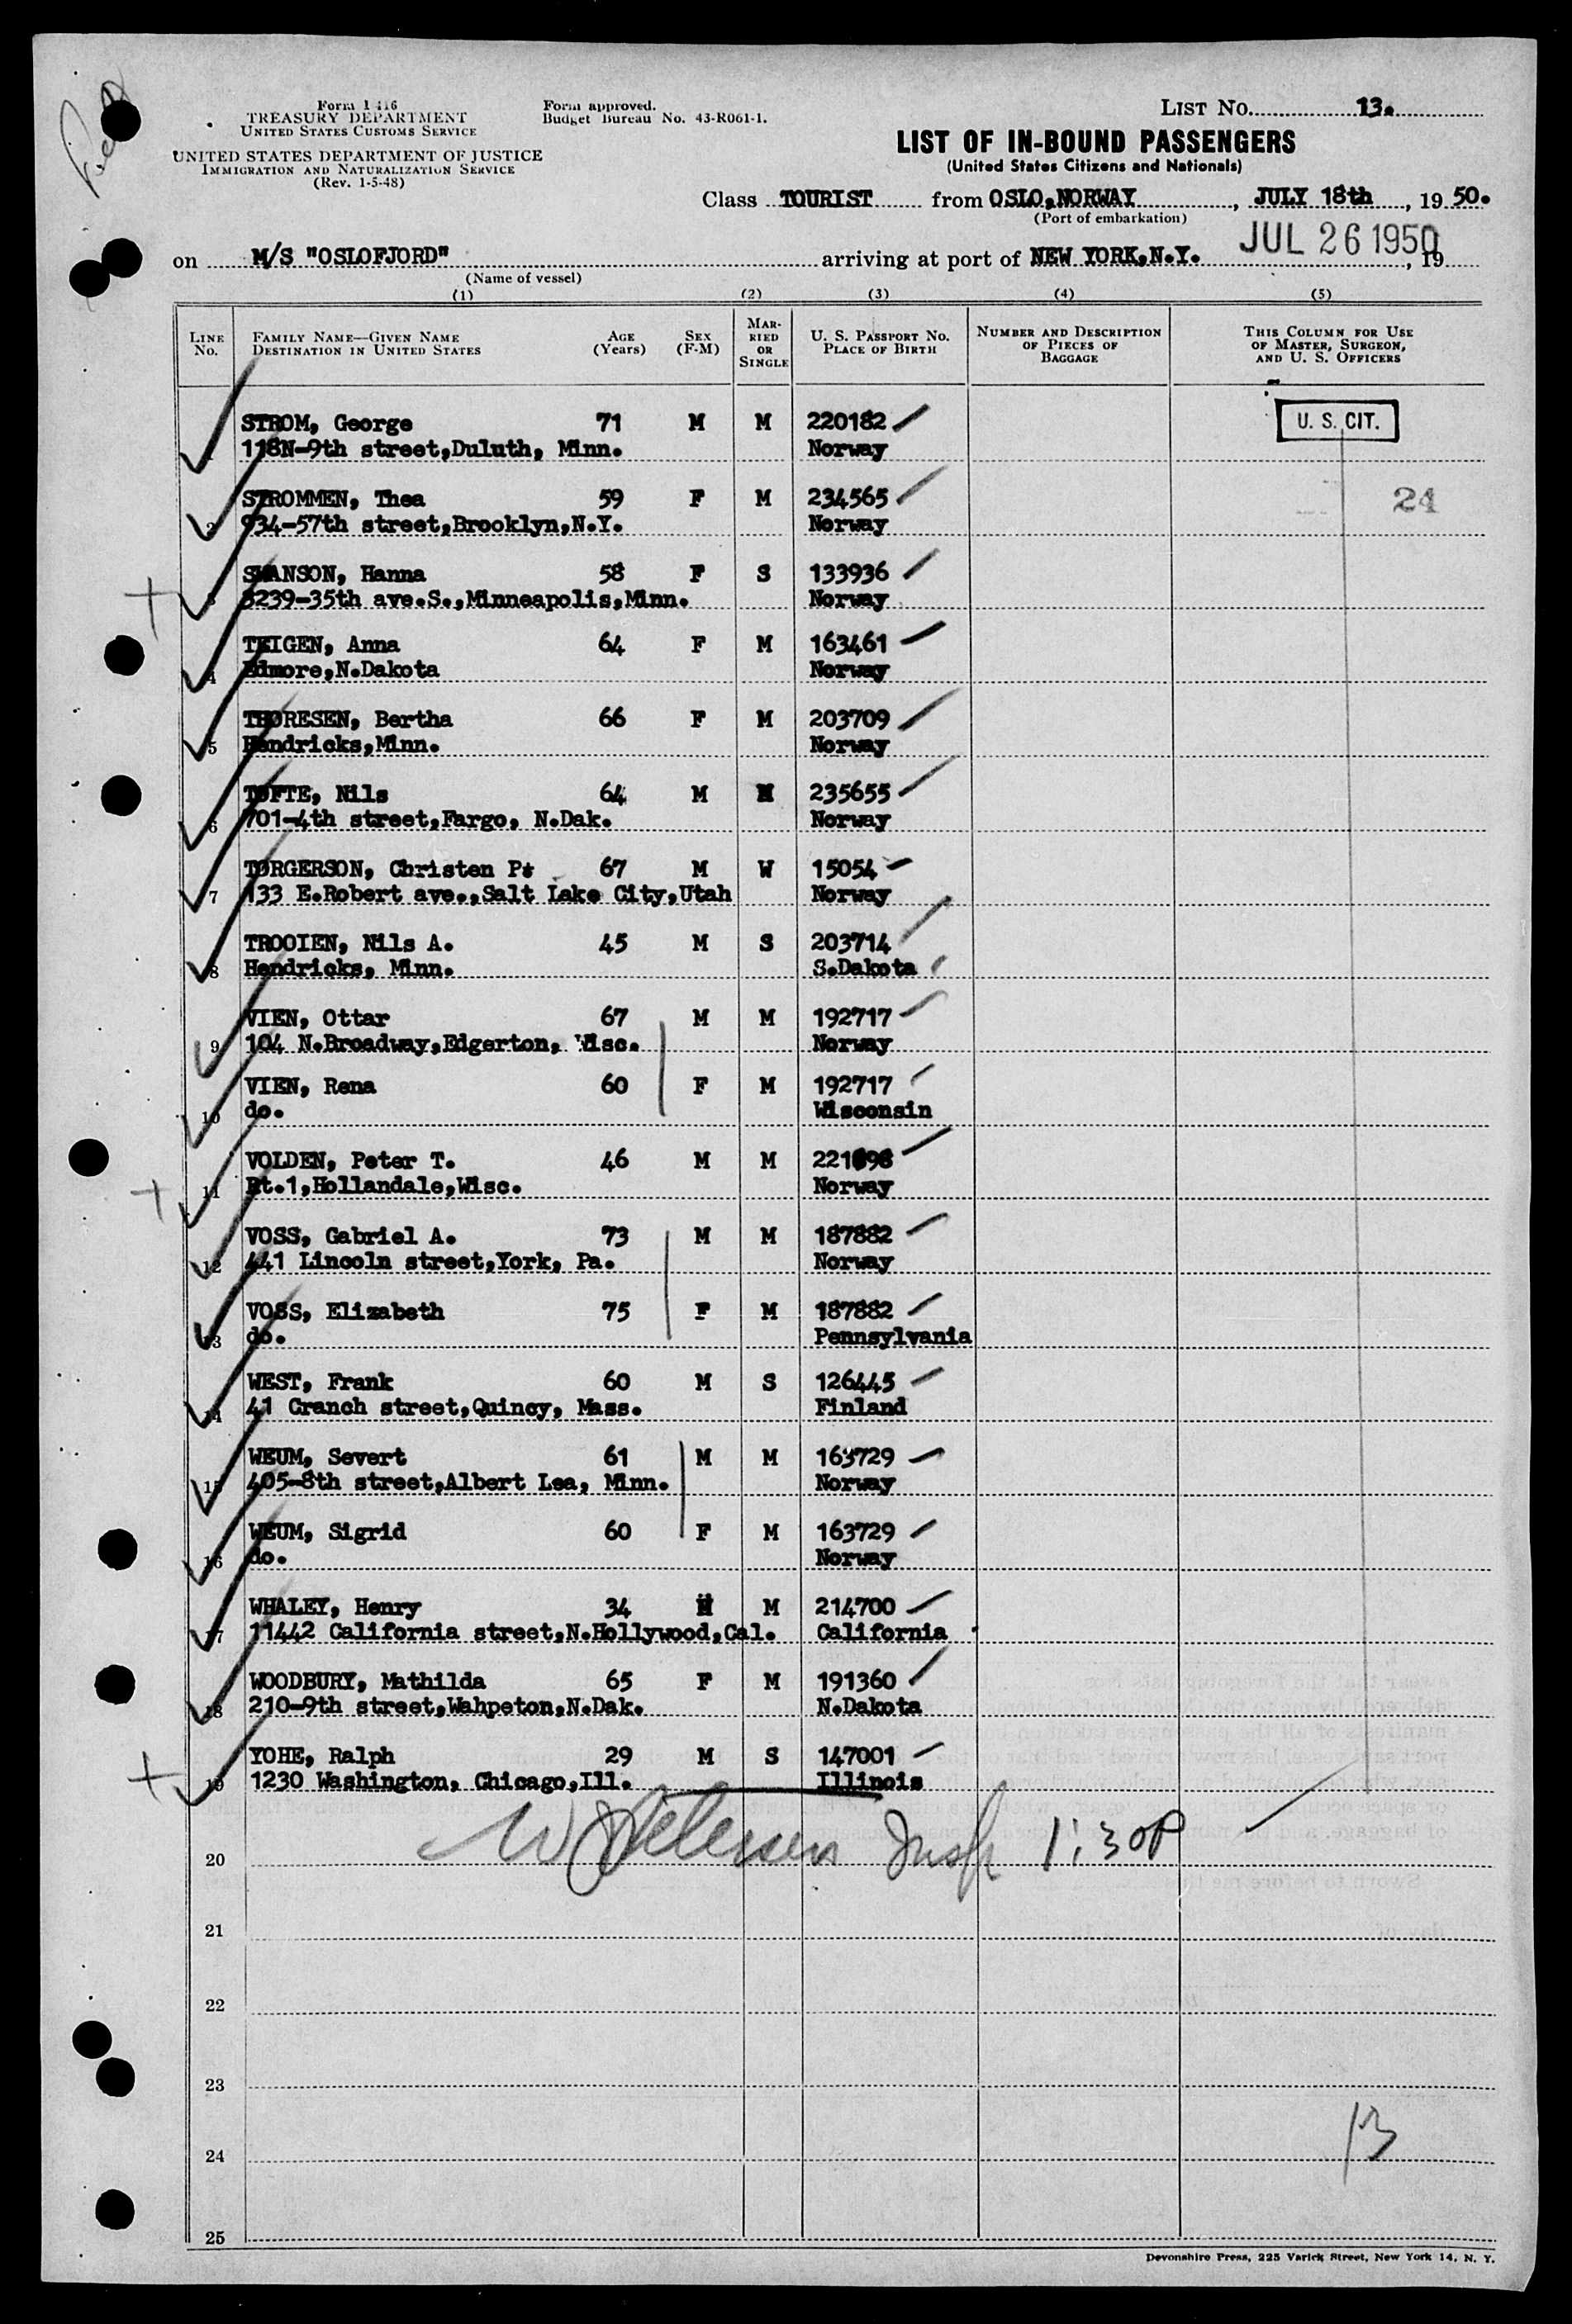 Form I 416
TREASURY DEPARTMENT
UNITED STATES CUSTOMS SERVICE
UNITED STATES DEPARTMENT OF JUSTICE
IMMIGRATION AND NATURALIZATION SERVICE
(Rev. 1-5-48)
Form approved.
Budget Bureau No. 43-R061-1.
LIST No. 13.
LIST OF IN-BOUND PASSENGERS
(United States Citizens and Nationals)
Class TOURIST from OSLO,NORWAY, JULY 18th, 1950.
(Port of embarkation)
on M/S "OSLOFJORD" arriving at port of NEW YORK,N.Y. JUL 26 1950, 19
(Name of vessel)
(1) (2) (3) (4) (5)
LINE No. FAMILY NAME—GIVEN NAME DESTINATION IN UNITED STATES AGE (Years) SEX (F-M) MARRIED OR SINGLE U. S. PASSPORT NO. PLACE OF BIRTH NUMBER AND DESCRIPTION OF PIECES OF BAGGAGE THIS COLUMN FOR USE OF MASTER, SURGEON, AND U. S. OFFICERS
STROM, George 71 M M 220182 U. S. CIT.
118N-9th street,Duluth, Minn. Norway
STROMMEN, Thea 59 F M 234565 24
2 934-57th street,Brooklyn,N.Y. Norway
SWANSON, Hanna 58 F S 133936
3 3239-35th ave.S.,Minneapolis,Minn. Norway
TEIGEN, Anna 64 F M 163461
4 Edmore,N.Dakota Norway
THORESEN, Bertha 66 F M 203709
5 Hendricks,Minn. Norway
TOFTE, Nils 64 M M 235655
6 701-4th street,Fargo, N.Dak. Norway
TORGERSON, Christen P. 67 M W 15054
7 133 E.Robert ave.,Salt Lake City,Utah Norway
TROOIEN, Nils A. 45 M S 203714
8 Hendricks, Minn. S.Dakota
VIEN, Ottar 67 M M 192717
9 104 N.Broadway,Edgerton, Wisc. Norway
VIEN, Rena 60 F M 192717
10 do. Wisconsin
VOLDEN, Peter T. 46 M M
11 Rt.1,Hollandale,Wisc. Norway
VOSS, Gabriel A. 73 M M 187882
12 441 Lincoln street,York, Pa. Norway
VOSS, Elizabeth 75 F M 187882
13 do. Pennsylvania
WEST, Frank 60 M S 126445
14 41 Cranch street,Quincy, Mass. Finland
WEUM, Severt 61 M M 163729
15 405-8th street,Albert Lea, Minn. Norway
WEUM, Sigrid 60 F M 163729
16 do. Norway
WHALEY, Henry 34 M M 214700
17 11442 California street,N.Hollywood,Cal. California
WOODBURY, Mathilda 65 F M 191360
18 210-9th street,Wahpeton,N.Dak. N.Dakota
YOHE, Ralph 29 M S 147001
19 1230 Washington, Chicago,Ill. Illinois
Petersen Insp 1:30P
20
21
22
23
13
24
25
Devonshire Press, 225 Varick Street, New York 14, N. Y.